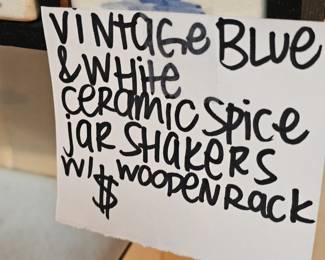 VINtAGe BLUe
& WHite
CeRAMIC SPice
JAR SHAKERS
W/ WOODeN RACK
$